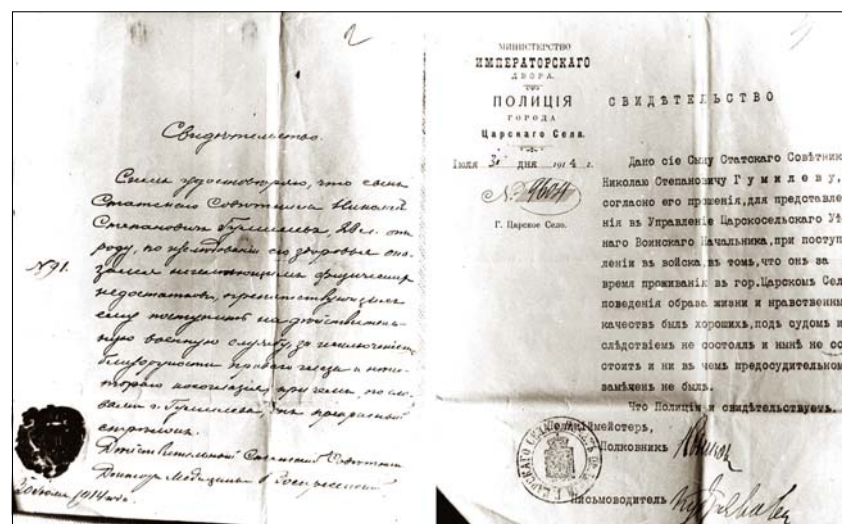 2
Свидѣтельство.
Симъ удостовѣряю, что сынъ
Статскаго Совѣтника Николай
Степановичъ Гумилевъ, 28 л. отъ
роду, по изслѣдованіи его здоровья ока-
зался неимѣющимъ физическихъ
недостатковъ, препятствующихъ
ему поступить на дѣйствитель-
ную военную службу, за исключеніемъ
близорукости праваго глаза и нѣко-
тораго косоглазія, при чемъ, по сло-
вамъ г. Гумилева, онъ прекрасный
стрѣлокъ.
Дѣйствительный Статскій Совѣтникъ
Докторъ Медицины
№ 91.
30 Іюля 1914 года.
МИНИСТЕРСТВО
ИМПЕРАТОРСКАГО
ДВОРА.
ПОЛИЦІЯ
ГОРОДА
Царскаго Села.
Іюля 31 дня 1914 г.
№ 9604
Г. Царское Село.
СВИДѢТЕЛЬСТВО
Дано сіе Сыну Статскаго Совѣтник
Николаю Степановичу Гумилеву,
согласно его прошенія, для представле
нія въ Управленіе Царскосельскаго Уѣ
наго Воинскаго Начальника, при поступ
леніи въ войска, въ томъ, что онъ за
время проживанія въ гор. Царскомъ Сел
поведенія образа жизни и нравственны
качествъ былъ хорошихъ, подъ судомъ и
слѣдствіемъ не состоялъ и нынѣ не со
стоитъ и ни въ чемъ предосудительном
замѣченъ не былъ.
Что Полиція и свидѣтельствуетъ.
Полиціймейстеръ,
Полковникъ
Письмоводитель